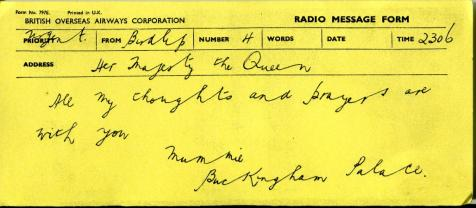 Form No. 797E. Printed in U.K.
BRITISH OVERSEAS AIRWAYS CORPORATION RADIO MESSAGE FORM
PRIORITY FROM Birdlip NUMBER H WORDS DATE TIME 2306
ADDRESS Her Majesty the Queen
All my thoughts and prayers are
with you
Mummie
Buckingham Palace.